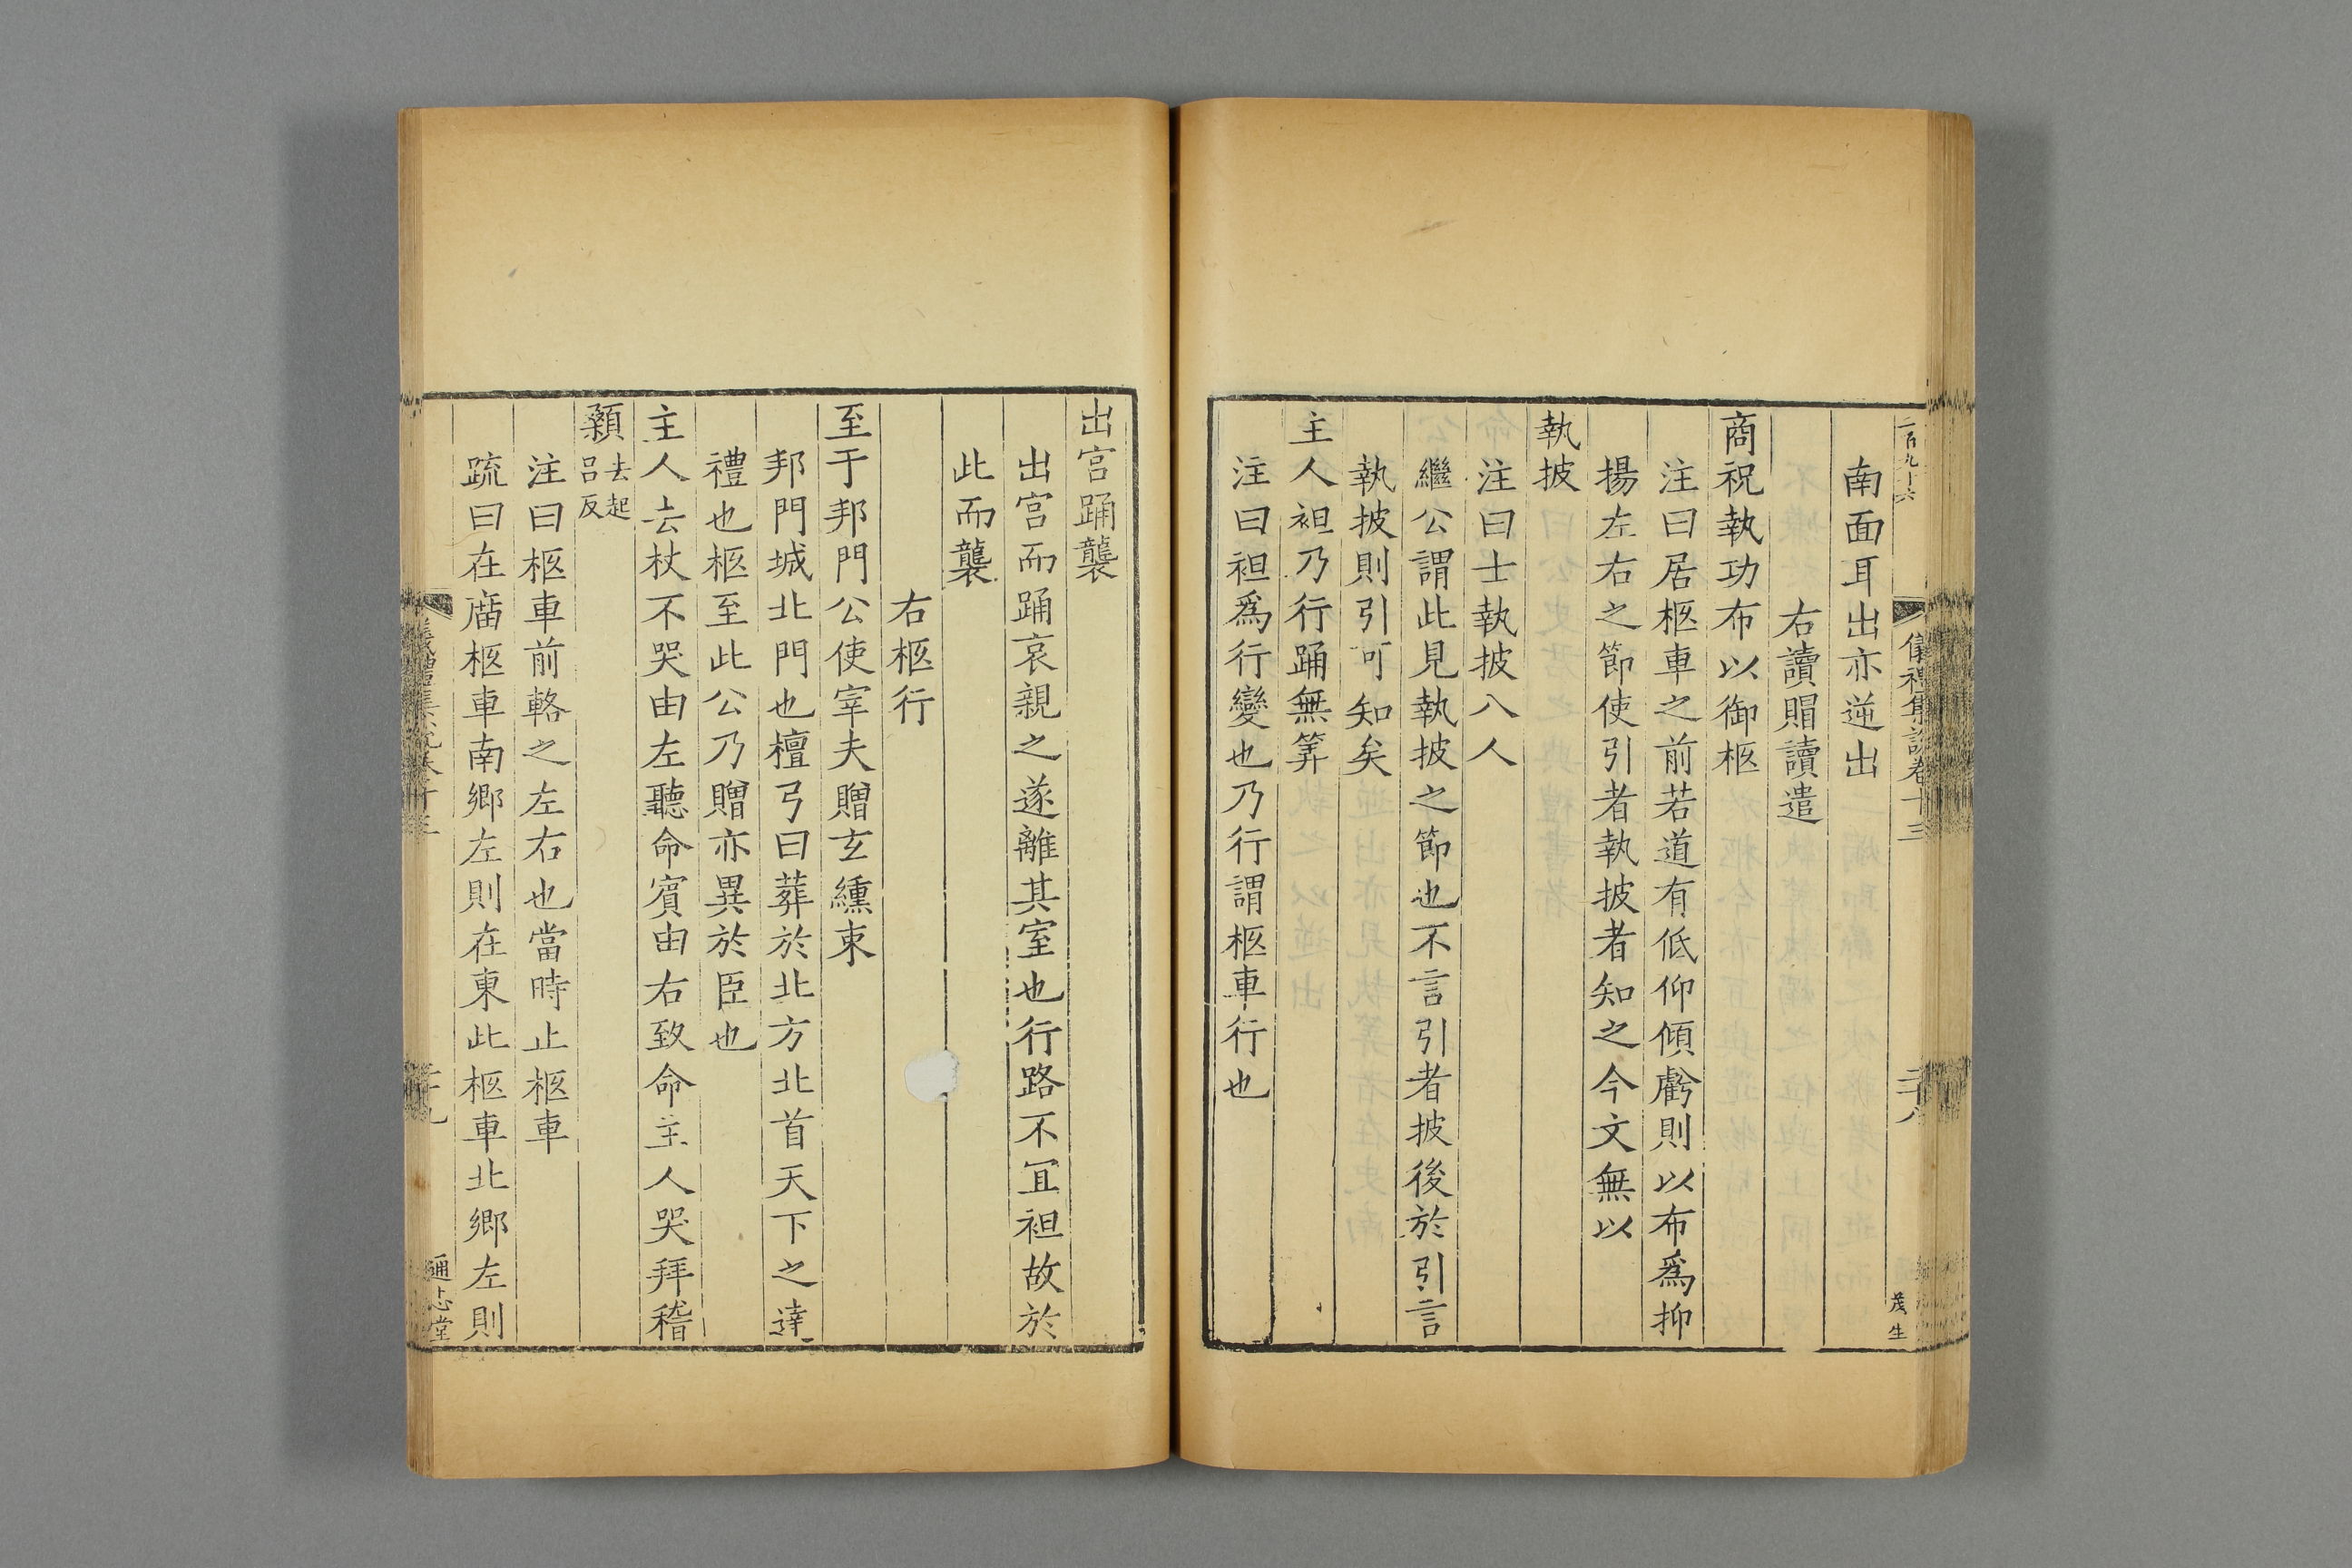 一百九十六
儀禮集說卷十三
三十八
茂生
南面耳出亦逆出
右讀賵讀遣
商祝執功布以御柩
注曰居柩車之前若道有低仰傾虧則以布爲抑
揚左右之節使引者執披者知之今文無以
執披
注曰士執披八人
繼公謂此見執披之節也不言引者披後於引言
執披則引可知矣
主人袒乃行踊無筭
注曰袒爲行變也乃行謂柩車行也
出宮踊襲
出宮而踊哀親之遂離其室也行路不冝袒故於
此而襲
右柩行
至于邦門公使宰夫贈玄纁束
邦門城北門也檀弓曰葬於北方北首天下之達
禮也柩至此公乃贈亦異於臣也
主人去杖不哭由左聽命賓由右致命主人哭拜稽
顙去起呂反
注曰柩車前輅之左右也當時止柩車
疏曰在廟柩車南鄉左則在東此柩車北鄉左則
通志堂